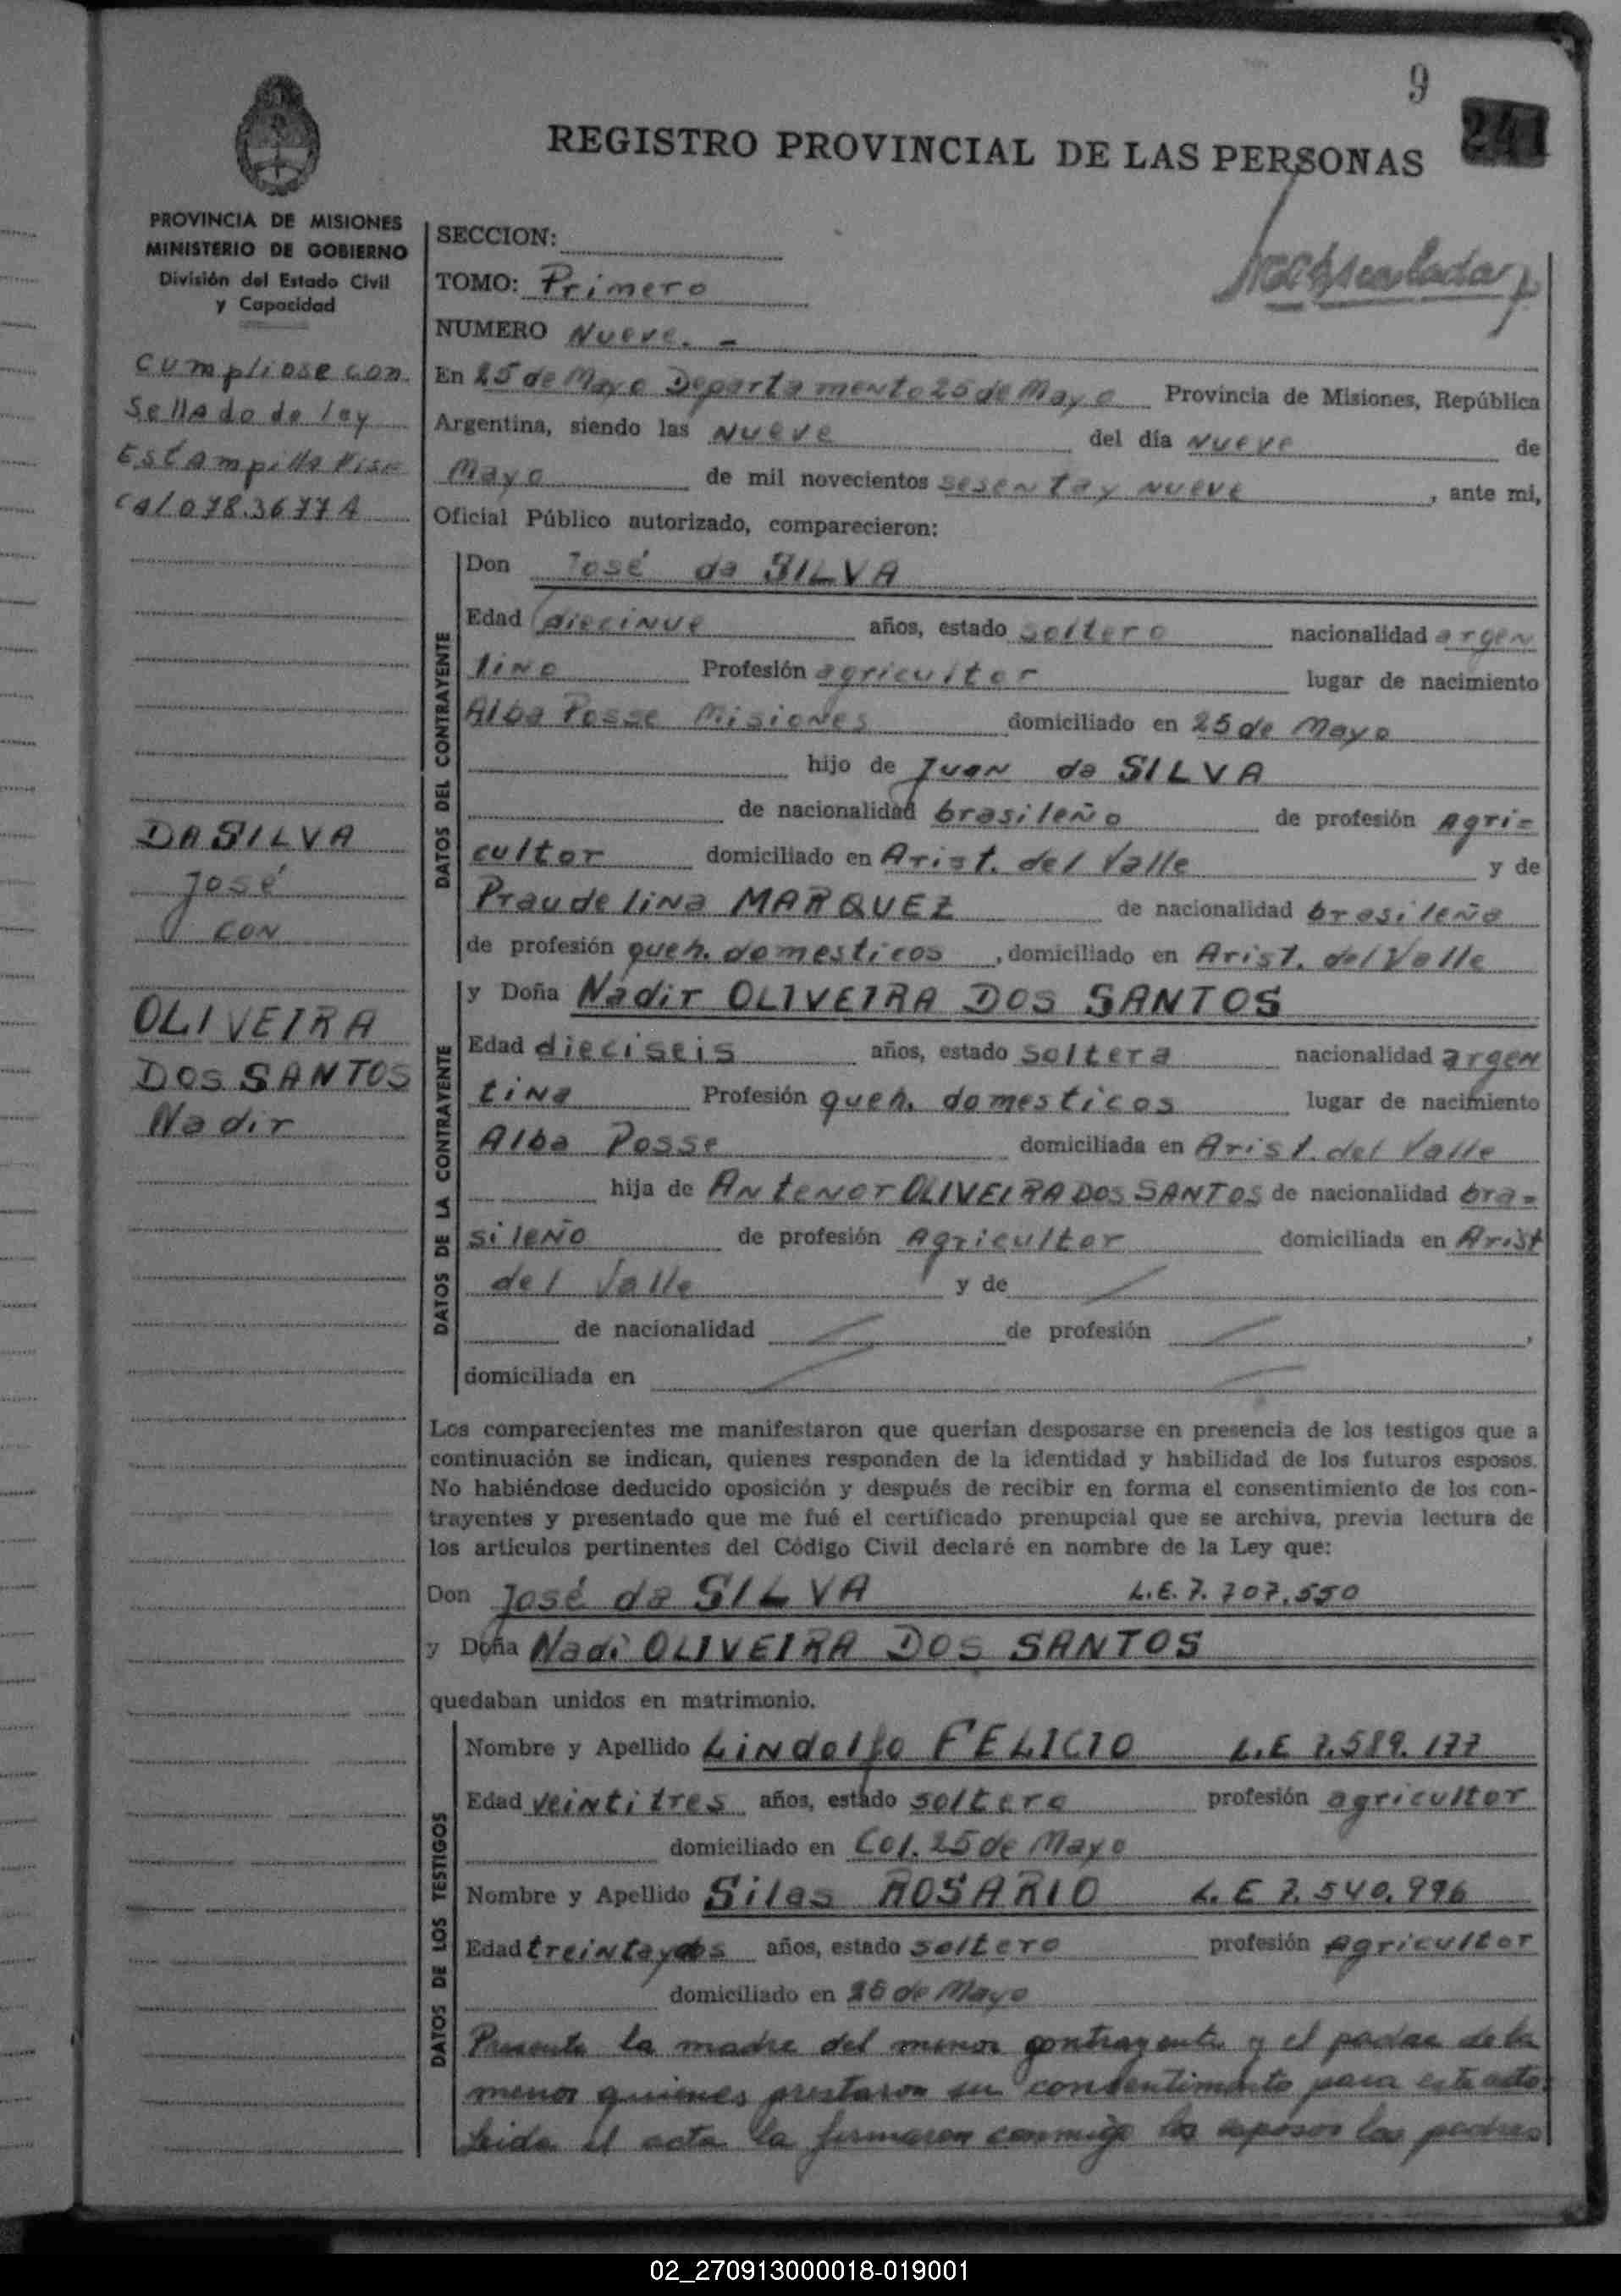 9
241
REGISTRO PROVINCIAL DE LAS PERSONAS
PROVINCIA DE MISIONES
MINISTERIO DE GOBIERNO
División del Estado Civil
y Capacidad
Cumpliose con
Sellado de ley
Estampilla Fis
cal
DA SILVA
José
CON
OLIVEIRA
DOS SANTOS
Nadir
SECCION:
TOMO: Primero
NUMERO Nueve. -
En 25 de Mayo Departamento 25 de Mayo Provincia de Misiones, República
Argentina, siendo las Nueve del día Nueve de
Mayo de mil novecientos sesenta y nueve, ante mi,
Oficial Público autorizado, comparecieron:
DATOS DEL CONTRAYENTE
Don José da SILVA
Edad diecinue años, estado soltero nacionalidad argen
tino Profesión agricultor lugar de nacimiento
Alba Posse Misiones domiciliado en 25 de Mayo
hijo de Juan da SILVA
de nacionalidad brasileño de profesión Agri=
cultor domiciliado en Arist. del Valle y de
Praudelina MARQUEZ de nacionalidad brasileña
de profesión queh. domesticos, domiciliado en Arist. del Valle
DATOS DE LA CONTRAYENTE
y Doña Nadir OLIVEIRA DOS SANTOS
Edad dieciseis años, estado soltera nacionalidad argen
tina Profesión queh. domesticos lugar de nacimiento
Alba Posse domiciliada en Arist. del Valle
hija de Antenor OLIVEIRA DOS SANTOS de nacionalidad bra=
sileño de profesión Agricultor domiciliada en Arist
del Valle y de
de nacionalidad de profesión ,
domiciliada en
Los comparecientes me manifestaron que querían desposarse en presencia de los testigos que a
continuación se indican, quienes responden de la identidad y habilidad de los futuros esposos.
No habiéndose deducido oposición y después de recibir en forma el consentimiento de los con-
trayentes y presentado que me fué el certificado prenupcial que se archiva, previa lectura de
los artículos pertinentes del Código Civil declaré en nombre de la Ley que:
Don José da SILVA L.E. 7.707.550
y Doña Nadi OLIVEIRA DOS SANTOS
quedaban unidos en matrimonio.
DATOS DE LOS TESTIGOS
Nombre y Apellido Lindolfo FELICIO L.E 7.589.177
Edad veintitres años, estado soltero profesión agricultor
domiciliado en Col. 25 de Mayo
Nombre y Apellido Silas ROSARIO L.E 7.540.996
Edad treintaydos años, estado soltero profesión Agricultor
domiciliado en 25 de Mayo
Presente la madre del menor contrayente y el padre de la
menor quienes prestaron su consentimiento para este acto.
Leida el acta la firmaron conmigo los esposos los padres
02_270913000018-019001